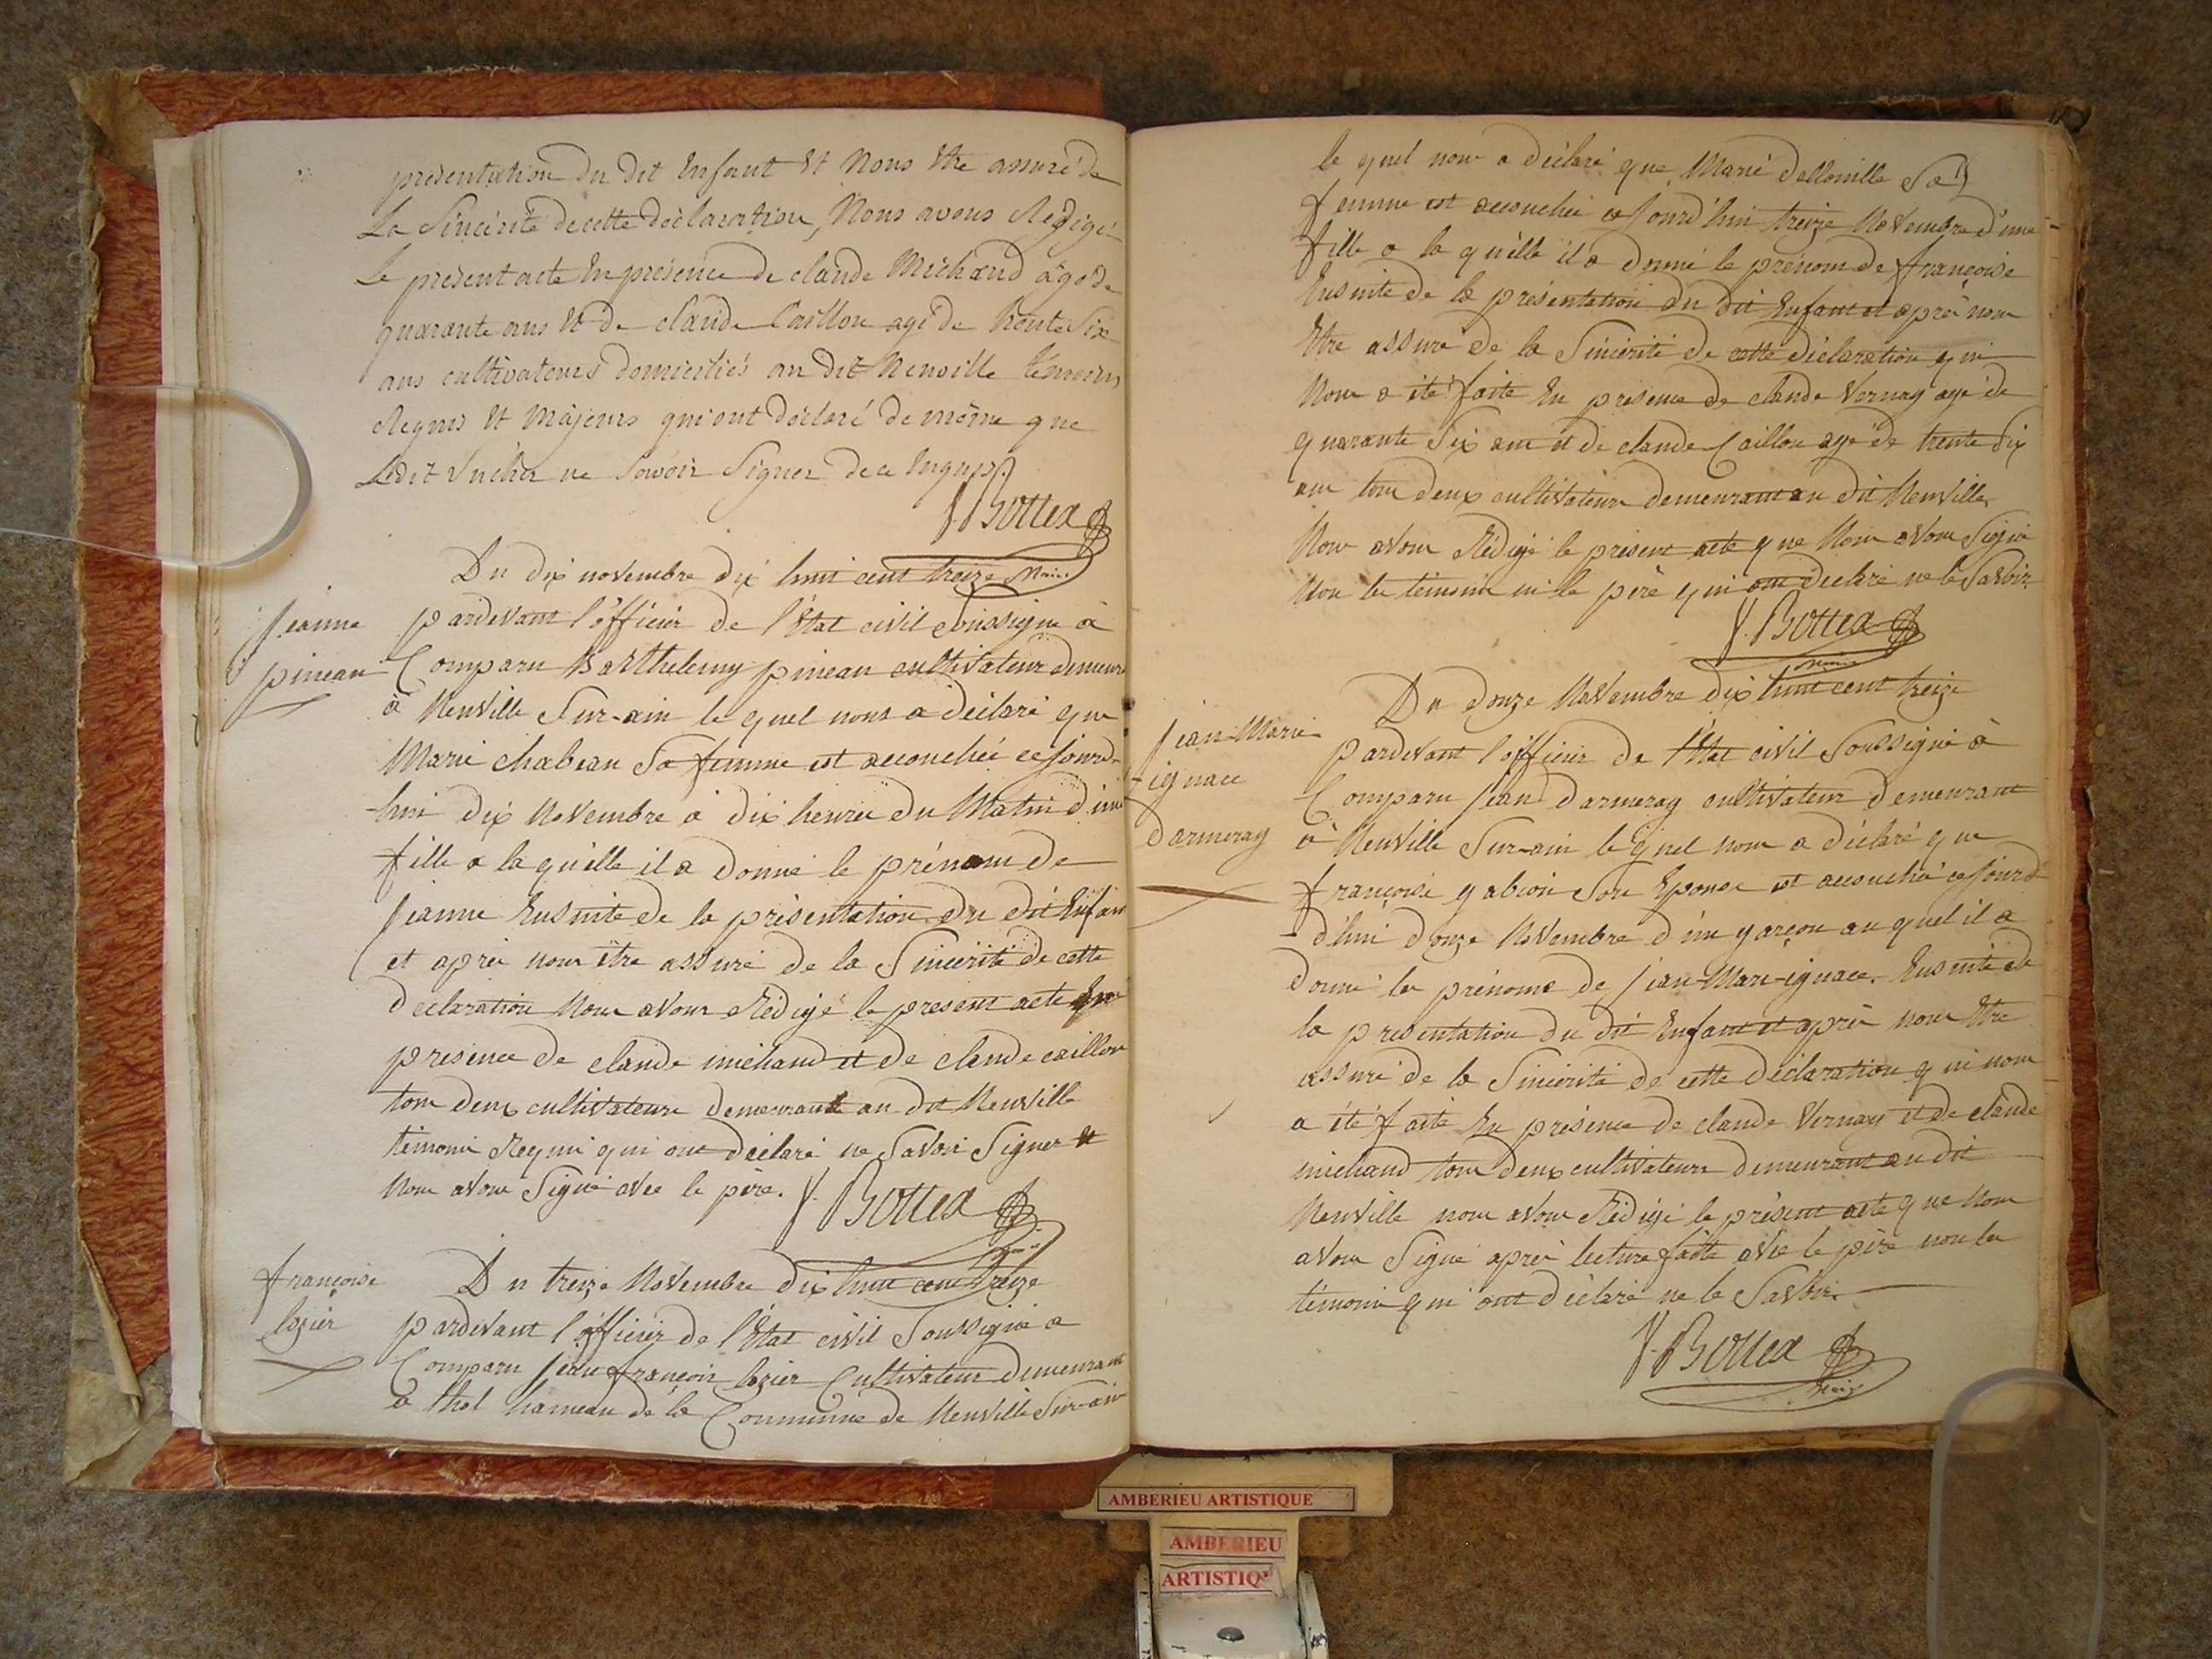 présentation du dit Enfant Et Nous Etre assuré de
La Sincérité de cette déclaration, Nous avons Rédigé
Le present acte En présence de claude Michaud âgé de
quarante ans Et de claude Caillou agé de trente Six
ans cultivateurs domiciliés au dit Neuville témoins
Requis Et Majeurs qui ont déclaré de même que
Ledit ne Savoir Signer de ce Enquis
J. Bottex
Maire
Du dix novembre dix huit cent treize
Jeanne
pineau
pardevant l'officier de l'Etat civil soussigné à
Comparu Barthelemy pineau cultivateur demeurt
à Neuville Sur-ain le quel nous a déclaré que
Marie chabeau Sa femme est accouchée ce Jourd-
hui dix Novembre à dix heures du Matin d'une
fille a la quelle il a donné le prénom de
Jeanne Ensuite de la présentation du dit Enfan
et après nous être assuré de la Sincérité de cette
declaration Nous avons Rédigé le present acte En
présence de claude michaud et de claude caillou
tous deux cultivateurs demeurant au dit Neuville
témoins Requis qui ont déclaré ne Savoir Signer et
Nous avons Signé avec le père. J. Bottex
françoise
lozier
Du treize Novembre dix huit cent treize
pardevant l'officier de l'Etat civil Soussigné a
Comparu Jean françois lozier Cultivateur demeurant
à thol hameau de la Commune de Neuville Sur-ain
le quel nous a déclaré que Marie Sa
femme est accouchée ce Jourd'hui treize Novembre d'une
fille a la quelle il a donné le prénom de françoise
Ensuite de la présentation du dit Enfant et après nous
Etre assuré de la Sincérité de cette déclaration qui
Nous a été faite En présence de claude Vernay agé de
quarante Six ans et de claude Caillou agé de trente Six
ans tous deux cultivateurs demeurant au dit Neuville
Nous avons Rédigé le présent acte que Nous avons Signé
Non les témoins ni le père qui ont déclaré ne le Savoir
J. Bottex
Maire
Du douze Novembre dix huit cent treize
Jean-Marie
-ignace
darmeray
pardevant l'officier de l'Etat civil Soussigné à
Comparu Jean darmeray cultivateur demeurant
à Neuville Sur-ain le quel nous a déclaré que
françoise Son Epouse est accouchée ce Jourd-
d'hui douze Novembre d'un garçon au quel il a
donné les prénoms de Jean-Marie-ignace. Ensuite de
la présentation du dit Enfant et après nous Etre
assuré de la Sincérité de cette déclaration qui nous
a été faite En présence de claude Vernay et de claude
michaud tous deux cultivateurs demeurant au dit
Neuville nous avons Rédigé le présent acte que Nous
avons Signé après lecture faite avec le père non les
témoins qui ont déclaré ne le Savoir.
J. Bottex
Maire
AMBERIEU ARTISTIQUE
AMBERIEU
ARTISTIQ